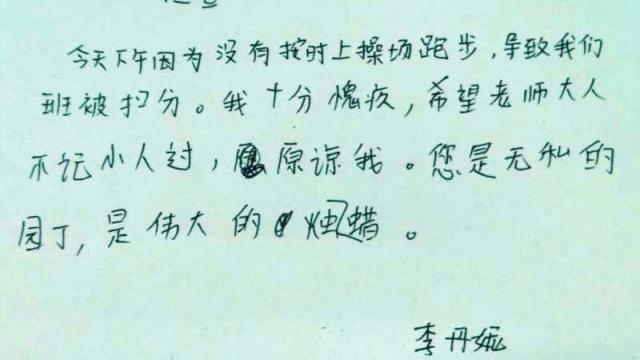 今天下午因为没有按时上操场跑步,导致我们
班被扣分。我十分愧疚,希望老师大人
不记小人过,原谅我。您是无私的
园丁,是伟大的烛蜡。
李丹妮